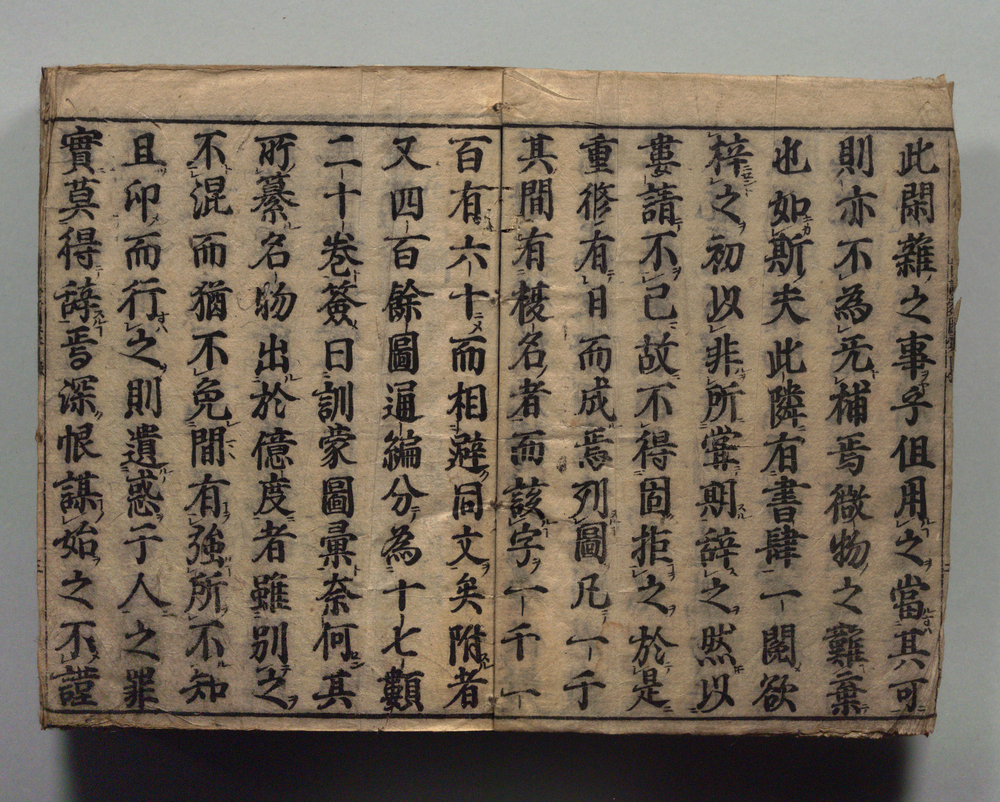 此閑雜之事乎但用之當其可
則亦不為无補焉微物之難棄
也如斯夫此隣有書肆一閱欲
梓之初以非所當期辭之然以
婁請不已故不得固拒之於是
重修有日而成焉列圖凡一千
其間有複名者而該字一千一
百有六十而相避同文矣附者
又四百餘圖通編分為十七類
二十卷簽曰訓蒙圖彙奈何其
所纂名物出於億度者雖別之
不混而猶不免間有強所不知
且印而行之則遺惑于人之罪
實莫得辭焉深恨謀始之不謹